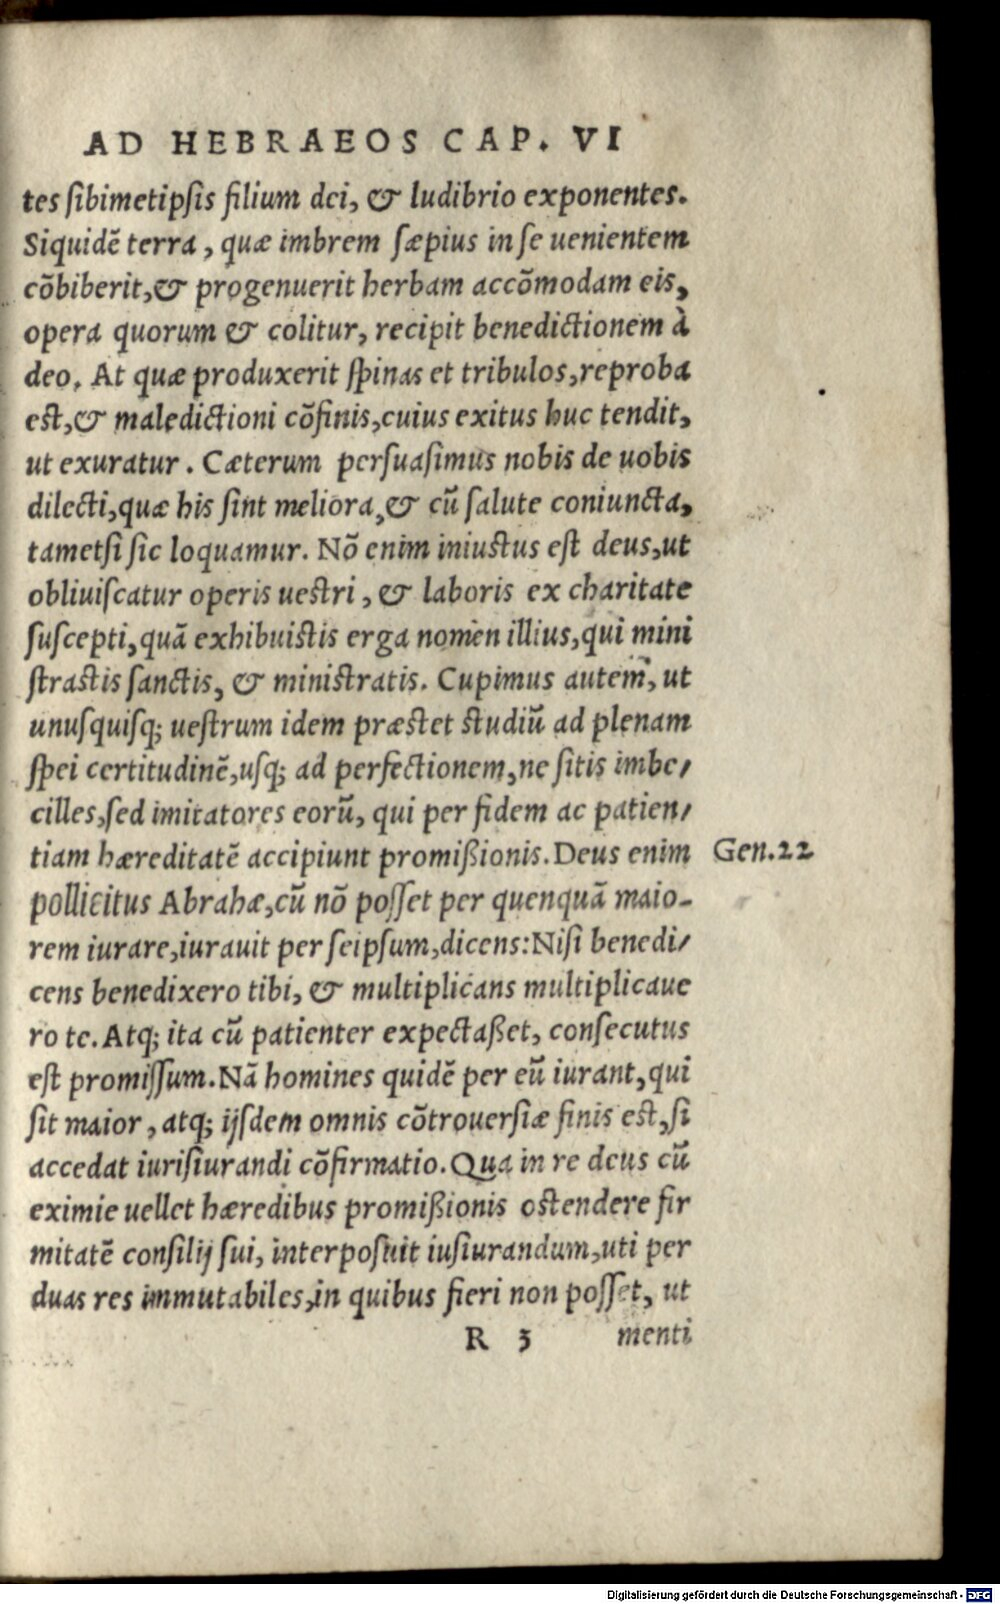 AD HEBRAEOS CAP. VI
tes sibimetipsis filium dei, & ludibrio exponentes.
Siquidē terra, quæ imbrem sæpius in se uenientem
cōbiberit, & progenuerit herbam accōmodam eis,
opera quorum & colitur, recipit benedictionem à
deo. At quæ produxerit spinas et tribulos, reproba
est, & maledictioni cōfinis, cuius exitus huc tendit,
ut exuratur. Cæterum persuasimus nobis de uobis
dilecti, quæ his sint meliora, & cū salute coniuncta,
tametsi sic loquamur. Nō enim iniustus est deus, ut
obliuiscatur operis uestri, & laboris ex charitate
suscepti, quā exhibuistis erga nomen illius, qui mini
strastis sanctis, & ministratis. Cupimus autem, ut
unusquisq; uestrum idem præstet studiū ad plenam
spei certitudinē, usq; ad perfectionem, ne sitis imbe/
cilles, sed imitatores eorū, qui per fidem ac patien/
tiam hæreditatē accipiunt promißionis. Deus enim
Gen.22
pollicitus Abrahæ, cū nō posset per quenquā maio-
rem iurare, iurauit per seipsum, dicens: Nisi benedi/
cens benedixero tibi, & multiplicans multiplicaue
ro te. Atq; ita cū patienter expectaßet, consecutus
est promissum. Nā homines quidē per eū iurant, qui
sit maior, atq; ijsdem omnis cōtrouersiæ finis est, si
accedat iurisiurandi cōfirmatio. Qua in re deus cū
eximie uellet hæredibus promißionis ostendere fir
mitatē consilij sui, interposuit iusiurandum, uti per
duas res immutabiles, in quibus fieri non posset, ut
R 3 menti
Digitalisierung gefördert durch die Deutsche Forschungsgemeinschaft - DFG